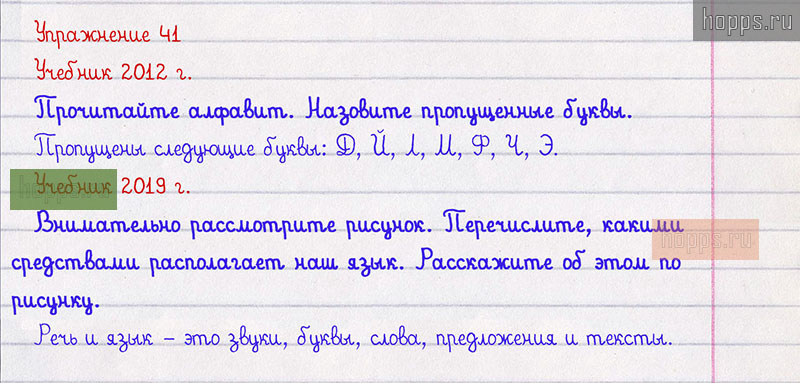 hopps.ru
Упражнение 41
Учебник 2012 г.
Прочитайте алфавит. Назовите пропущенные буквы.
Пропущены следующие буквы: Д, Й, Л, М, Ф, Ч, Э.
Учебник 2019 г.
hopps.ru
Внимательно рассмотрите рисунок. Перечислите, какими
hopps.ru
средствами располагает наш язык. Расскажите об этом по
рисунку.
Речь и язык – это звуки, буквы, слова, предложения и тексты.